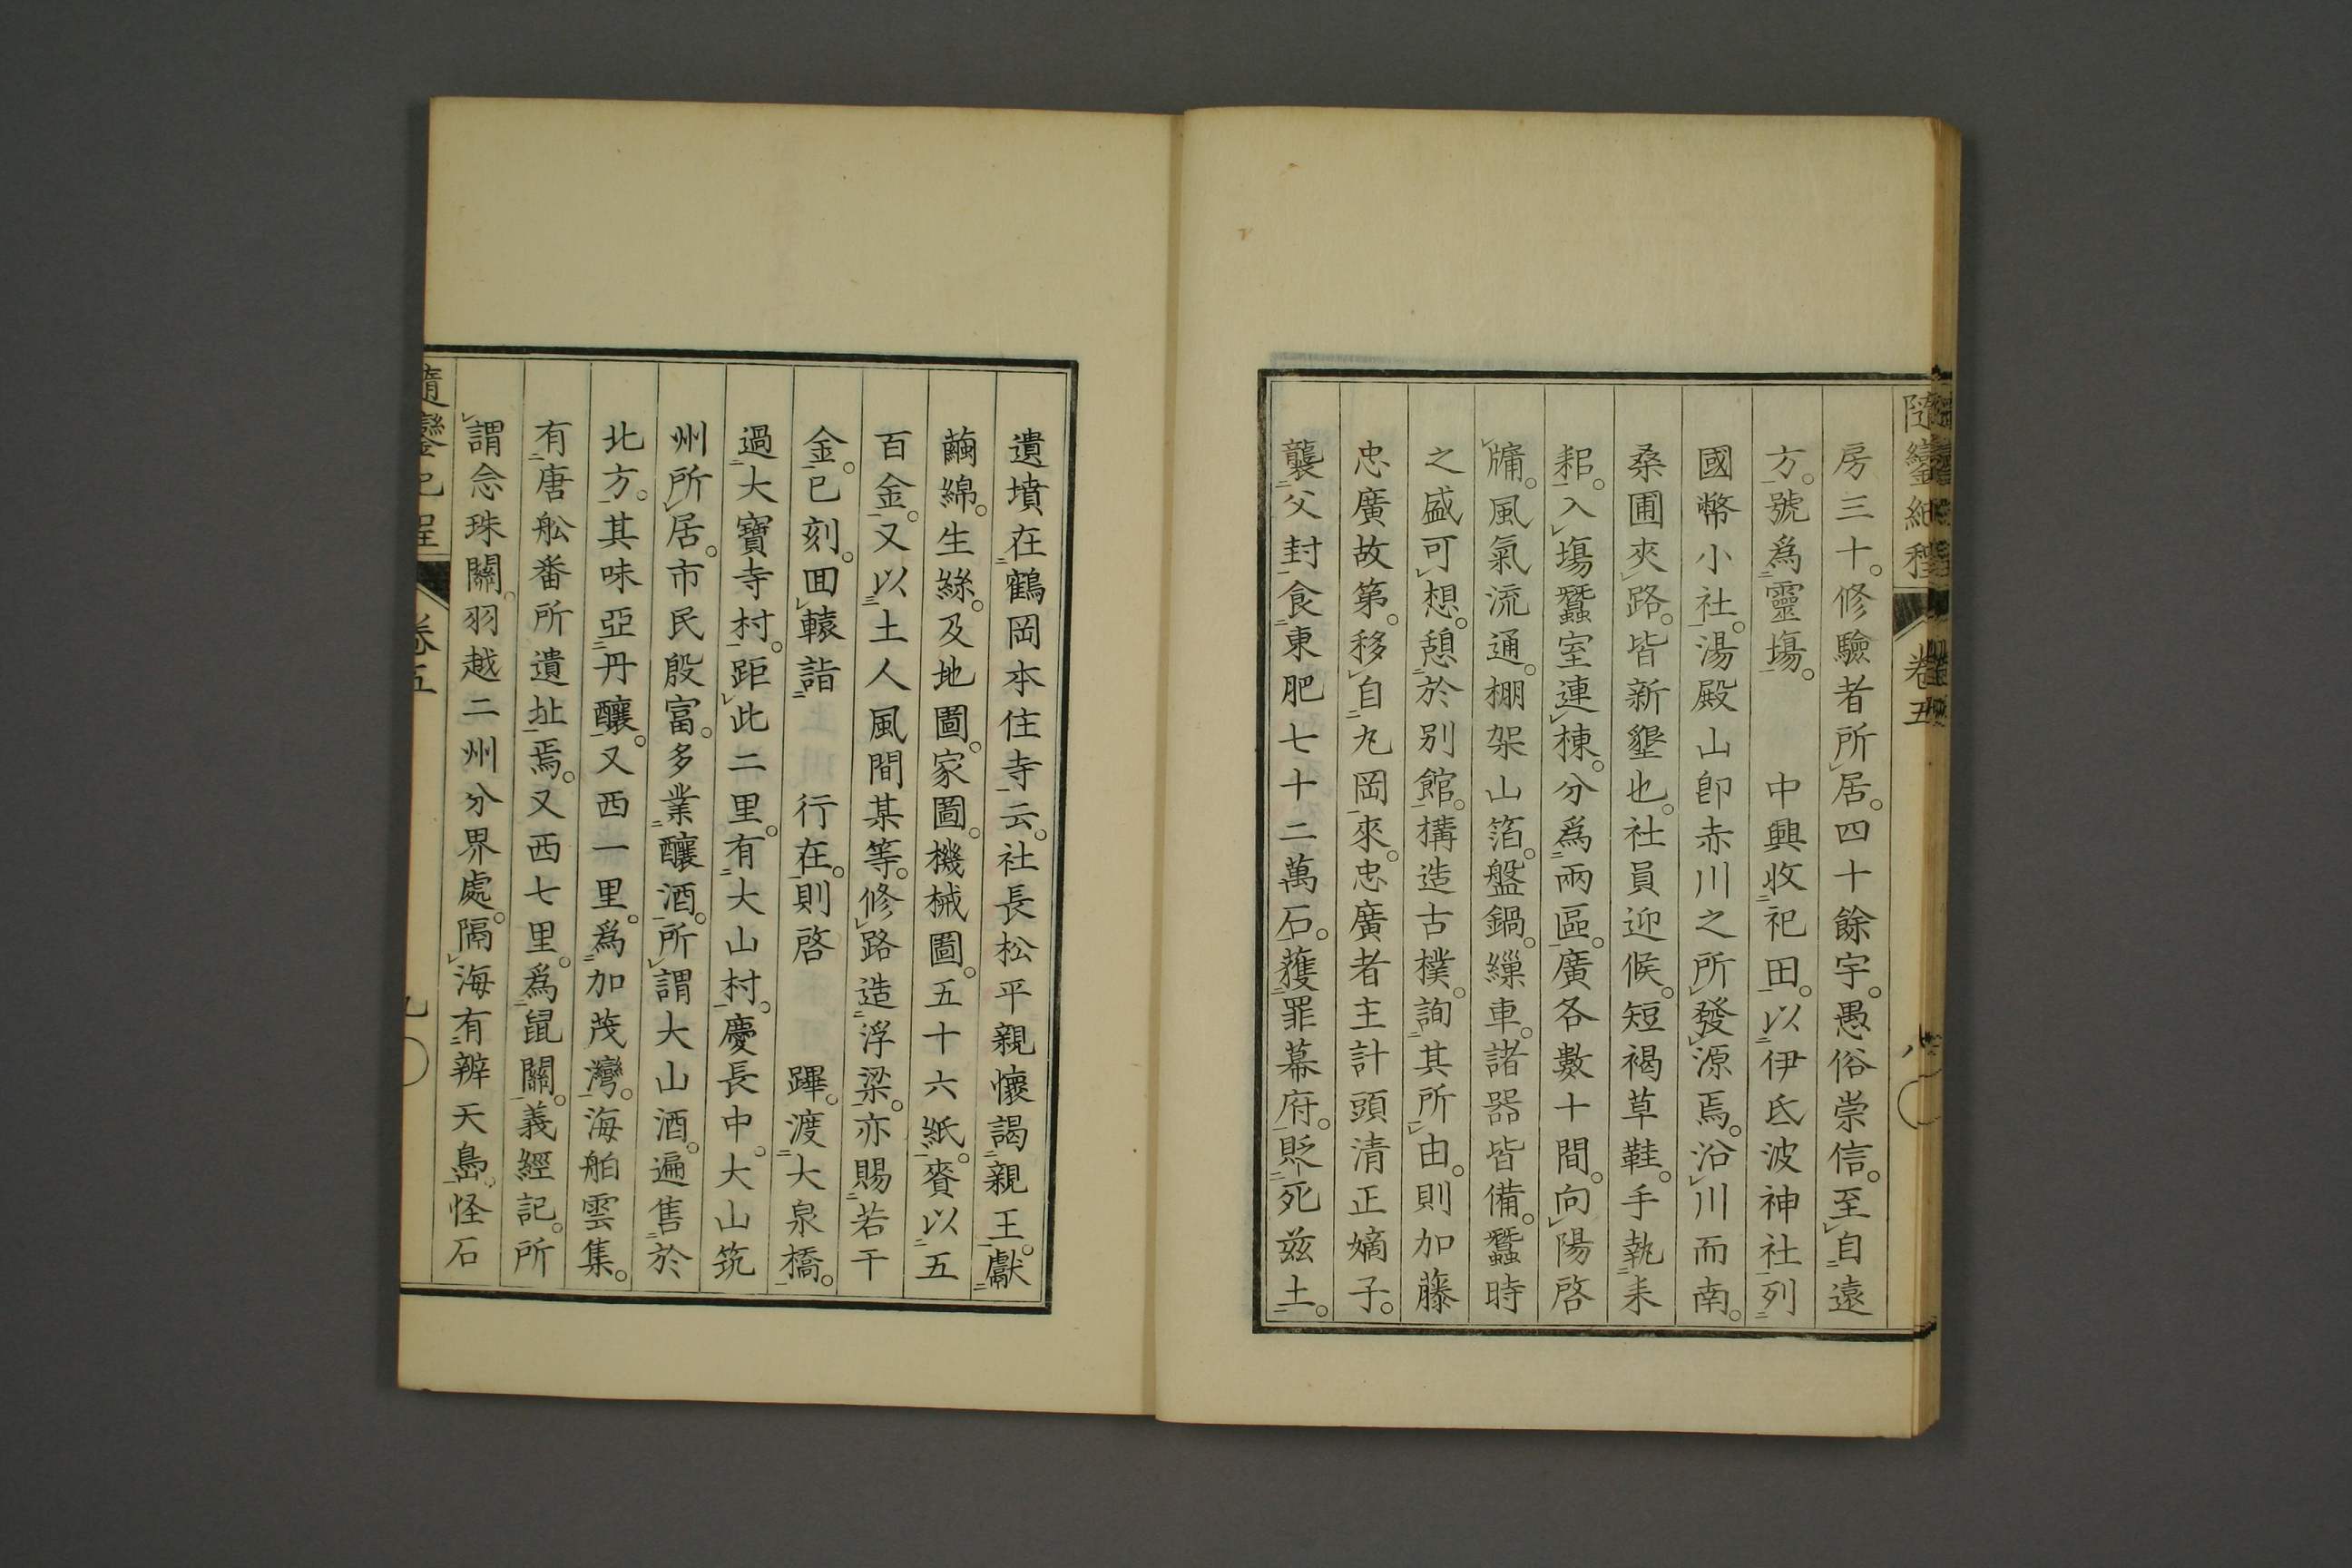 隨鑾紀程 卷五 八
房三十。修驗者所居。四十餘宇。愚俗崇信。至自遠
方。號爲靈場。 中興收祀田。以伊氐波神社列
國幣小社。湯殿山卽赤川之所發源焉。沿川而南。
桑圃夾路。皆新墾也。社員迎候。短褐草鞋。手執耒
耜。入場蠶室連棟。分爲兩區。廣各數十間。向陽啓
牗。風氣流通。棚架山箔。盤鍋。繅車。諸器皆備。蠶時
之盛可想。憩於別館。構造古樸。詢其所由。則加藤
忠廣故第。移自丸岡來。忠廣者主計頭清正嫡子。
襲父封食東肥七十二萬石。獲罪幕府。貶死茲土。
遺墳在鶴岡本住寺云。社長松平親懷謁親王。獻
繭綿。生絲。及地圖。家圖。機械圖。五十六紙。賚以五
百金。又以土人風間某等。修路造浮梁。亦賜若干
金。已刻。回轅詣 行在。則啓 蹕。渡大泉橋。
過大寶寺村。距此二里。有大山村。慶長中。大山筑
州所居。市民殷富。多業釀酒。所謂大山酒。遍售於
北方。其味亞丹釀。又西一里。爲加茂灣。海舶雲集。
有唐舩番所遺址焉。又西七里。爲鼠關。義經記。所
謂念珠關。羽越二州分界處。隔海有辨天島。怪石
隨鑾紀程 卷五 九